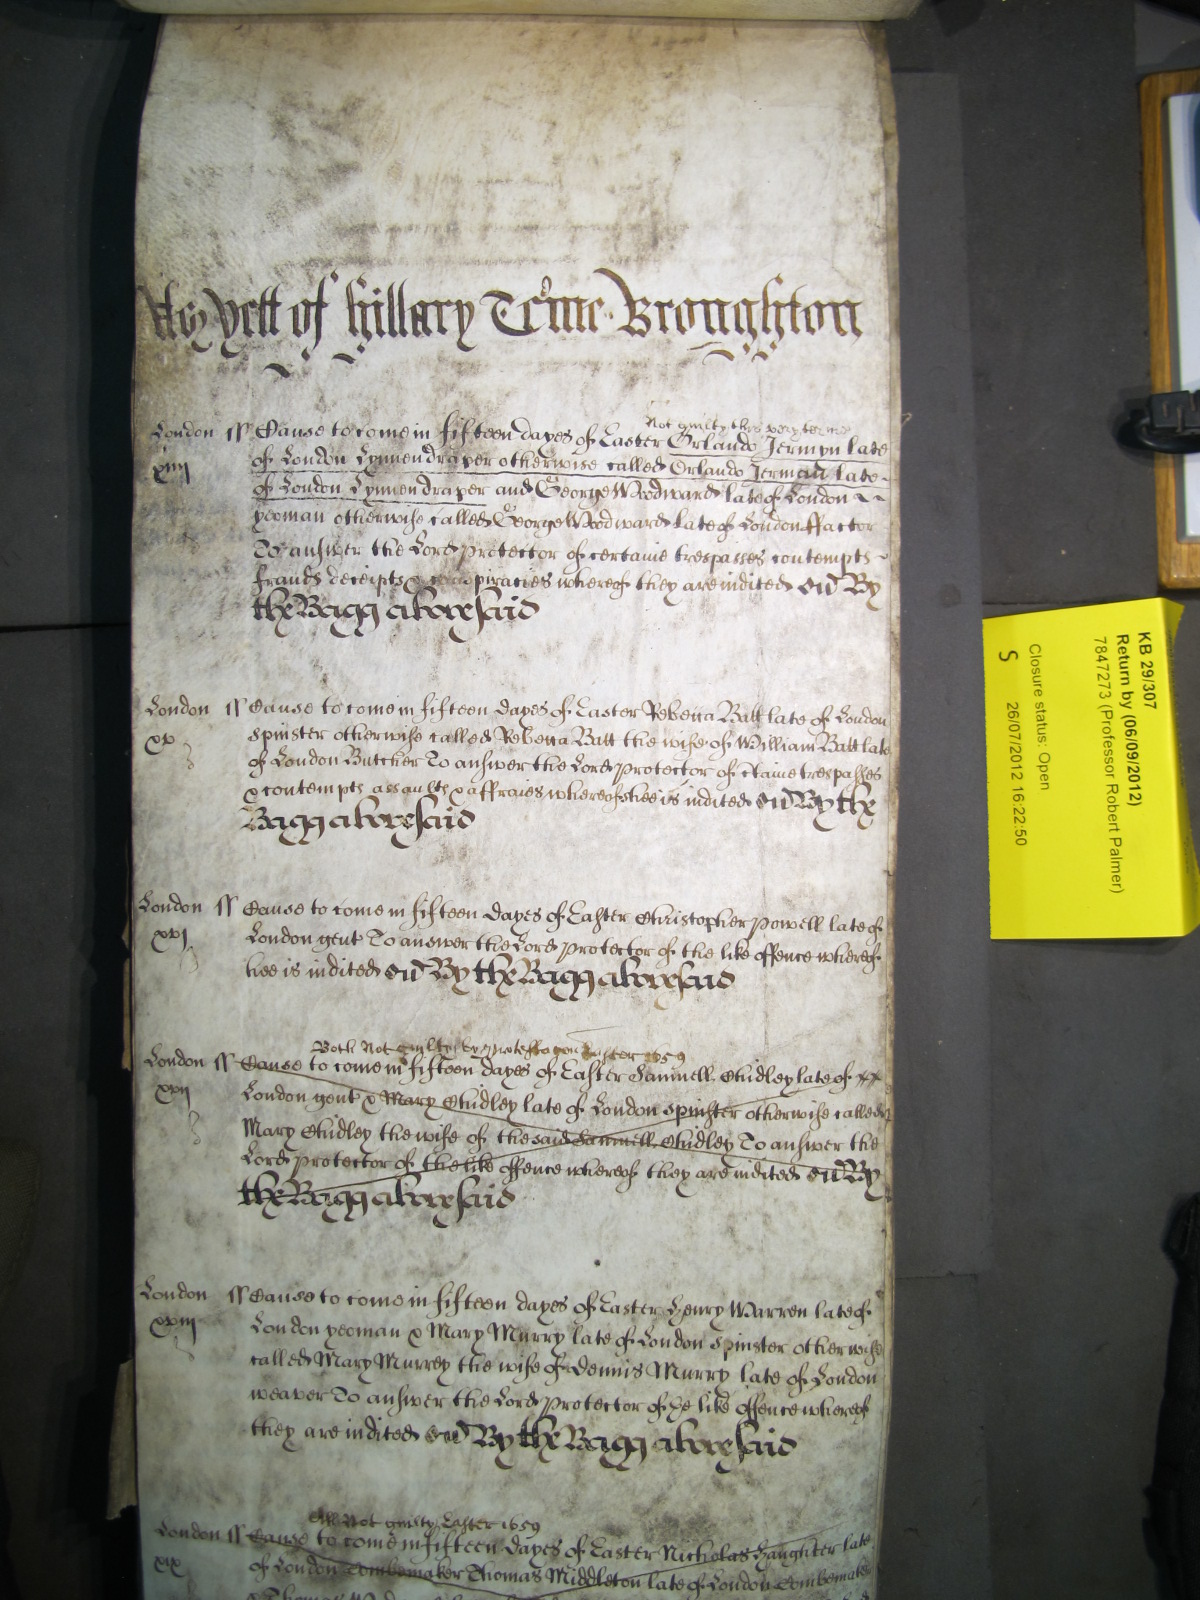 As yett of Hillary Terme Broughton
Not guilty this very terme
London ss Cause to come in fifteen dayes of Easter Orlando Jermyn late
xiiij of London Lynnendraper otherwise called Orlando Jerman late
of London Lynnendraper and George Woodward late of London
yeoman otherwise called George Woodward late of London ffactor
To answer the Lord Protector of certaine trespasses contempts
frauds deceipts & conspiracies whereof they are indited By
the Bagg aforesaid
London ss Cause to come in fifteen dayes of Easter Rebecca Batt late of London
xv spinster otherwise called Rebecca Batt the wife of William Batt late
of London Butcher To answer the Lord Protector of ctaine trespasses
& contempts assaults & affraies whereof shee is indited By the
Bagg aforesaid
London ss Cause to come in fifteen dayes of Easter Christopher Powell late of
xvj London gent To answer the Lord Protector of the like offence whereof
hee is indited By the Bagg aforesaid
Both Not guilty Easter 1659
London ss Cause to come in fifteen dayes of Easter Samuell Studley late of
xvij London gent & Mary Studley late of London spinster otherwise called
Mary Studley the wife of the said Samuell Studley To answer the
Lord Protector of the like offence whereof they are indited By
the Bagg aforesaid
London ss Cause to come in fifteen dayes of Easter Henry Warren late of
xviij London yeoman & Mary Murry late of London spinster otherwise
called Mary Murrey the wife of Dennis Murry late of London
weaver To answer the Lord Protector of ye like offence whereof
they are indited By the Bagg aforesaid
All Not guilty Easter 1659
London ss Cause to come in fifteen dayes of Easter Nicholas late
xix of London Combemaker Thomas Middleton late of London Combemaker
KB 29/307
Return by (06/09/2012)
7847273 (Professor Robert Palmer)
Closure status: Open
S 26/07/2012 16:22:50